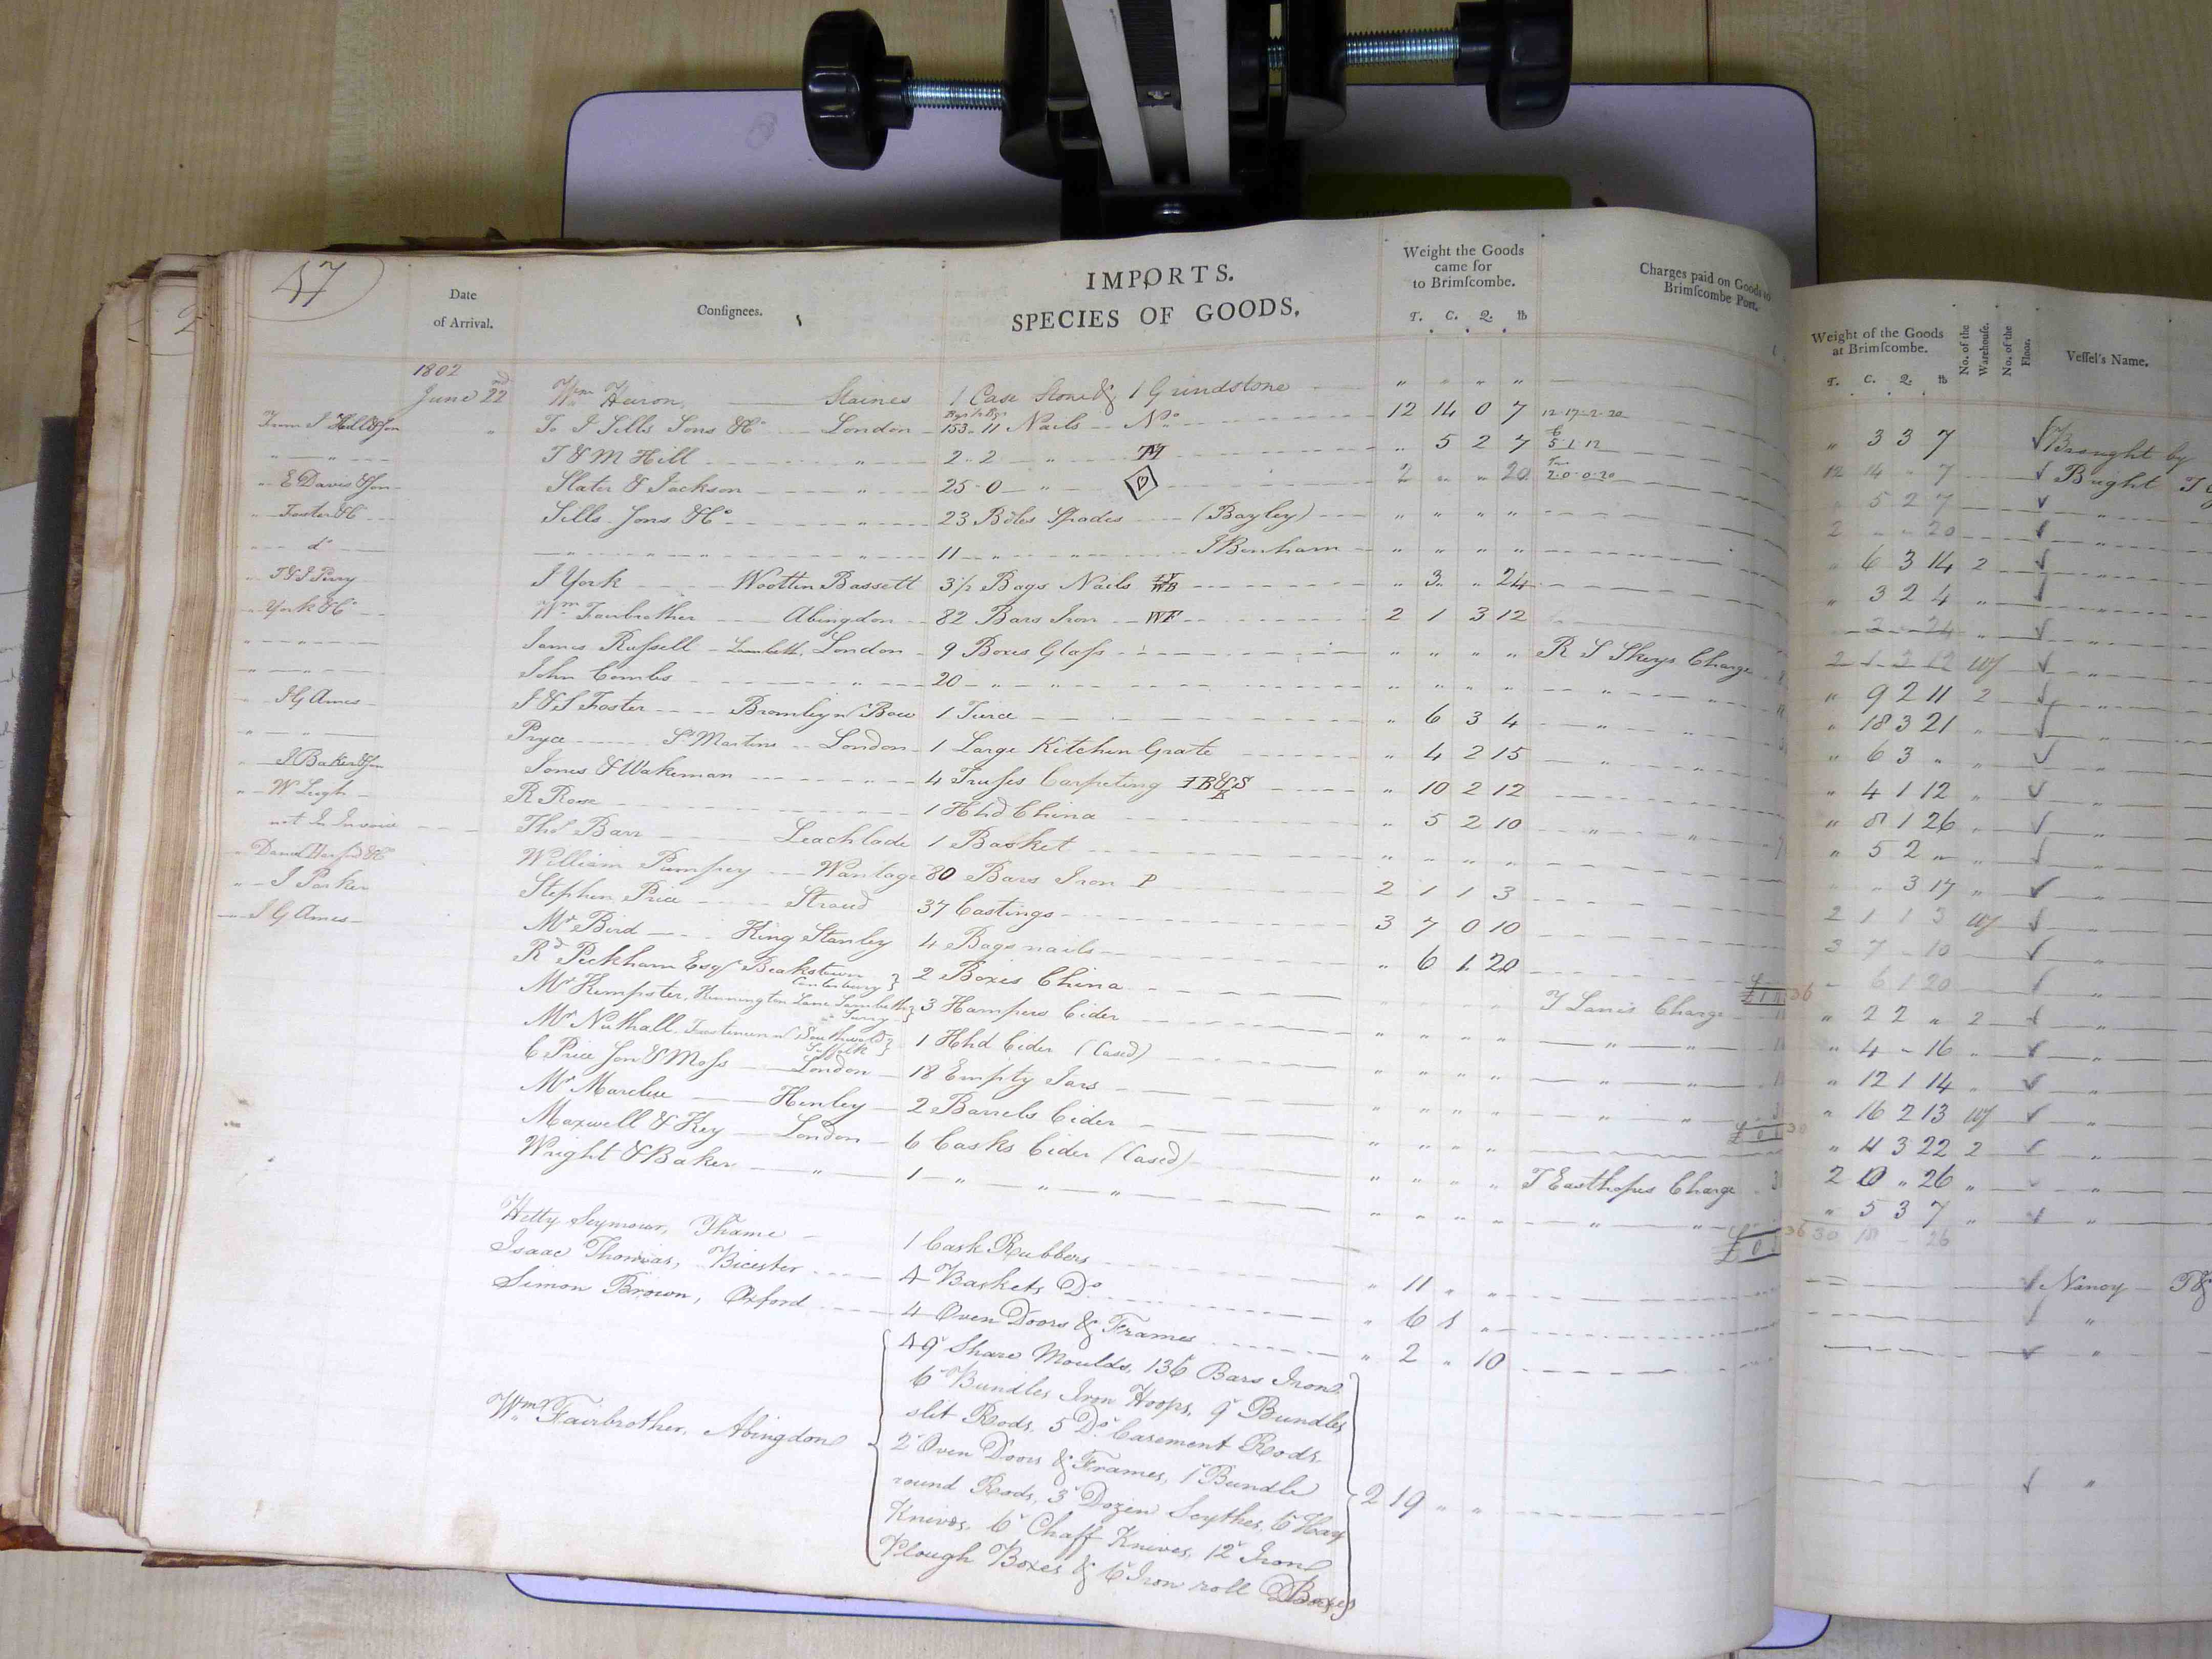 47
Date of Arrival.
Consignees.
IMPORTS.
SPECIES OF GOODS.
Weight the Goods came for to Brimſcombe.
T. C. Q. lb
Charges paid on Goods to Brimſcombe Port.
Weight of the Goods at Brimſcombe.
T. C. Q. lb
No. of the Warehouſe.
No. of the Floor.
Veſſel's Name.
1802
June 22nd Wm Huron, Staines 1 Case Stone & 1 Grindstone " " " " " 3 3 7 √ Brought by
From J Hill & Son " To J Sells Sons & Co London 153 " 11 Nails No 12 14 0 7 12-17-2-20 12 14 " 7 √ Bright
" " T & M Hill " 2-2 " TM " 5 2 7 5-1-12 " 5 2 7 √ "
" E Davis & Son Slater & Jackson " 25-0 " 2 " " 20 2-0-0-20 2 " " 20 √ "
" Foster & Co Sells Sons & Co " 23 Bdles Spades (Bayley) " " " " " 6 3 14 2 √ "
" do " " " " 11 " " J Benham " " " " " 3 2 4 " √ "
" T & J Perry J York Wootten Bassett 3 1/2 Bags Nails " 3 " 24 " 3 " 24 " √ "
" York & Co Wm Fairbrother Abingdon 82 Bars Iron WF 2 1 3 12 2 1 3 12 Wf √ "
" " James Russell Lambeth, London 9 Boxes Glass " " " " R S Skeys Charge " 9 2 11 2 √ "
" " John Combs " 20 " " " " " " " " " 18 3 21 " √ "
" J G Ames J & S Foster Bromley nr Bow 1 Turce " 6 3 4 " " " 6 3 " " √ "
" " Pryce St Martins London 1 Large Kitchen Grate " 4 2 15 " " " 4 1 12 " √ "
" J Baker & Son Jones & Wakeman " 4 Trusses Carpeting " 10 2 12 " 8 1 26 " √ "
" W Leigh R Rose 1 Hhd China " 5 2 10 " " " 5 2 " " √ "
not In Invoice Thos Barr Leachlade 1 Basket " " " " " " 3 17 " √ "
William Pumfrey Wantage 80 Bars Iron P 2 1 1 3 2 1 1 3 Wf √
" J Parker Stephen Price Stroud 37 Castings 3 7 0 10 3 7 " 10 √
" J G Ames Mr Bird King Stanley 4 Bags nails " 6 1 20 " 6 1 20 √ "
Rd Peckham Esqr Canterbury } 2 Boxes China " " " " T Lanis Charge " 2 2 " 2 √ "
Mr Kempster, Kennington Lane Lambeth Surry } 3 Hampers Cider " " " " " " " 4 " 16 " √ "
Mr Nuthall Southwold Suffolk } 1 Hhd Cider (Cased) " " " " " " " 12 1 14 " √ "
C Price Son & Moss London 18 Empty Jars " " " " " " " 16 2 13 Wf √ "
Mr Henley 2 Barrels Cider " " " " " 4 3 22 2 √ "
Maxwell & Key London 6 Casks Cider (Cased) " " " " T Easthopes Charge 2 0 " 26 " √ "
Wright & Baker " 1 " " " " " " " " " " 5 3 7 " √ "
30 18 " 26
Hetty Seymour, Thame 1 Cask Rubbers " 11 " " √ Nancy T &
Isaac Thomas, Bicester 4 Baskets Do " 6 1 " √ "
Simon Brown, Oxford 4 Oven Doors & Frames " 2 " 10 √ "
Wm Fairbrother, Abingdon { 49 Share Moulds, 136 Bars Iron
6 Bundles Iron Hoops, 9 Bundles
slit Rods, 5 Do Casement Rods,
2 Oven Doors & Frames, 1 Bundle
round Rods, 3 Dozen Scythes, 6 Hay
Knives, 6 Chaff Knives, 12 Iron
Plough Boxes & 6 Iron roll Boxes } 2 19 " " √ "